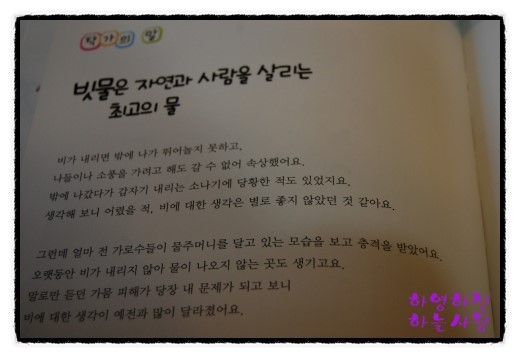 작가의 말
빗물은 자연과 사람을 살리는
최고의 물
비가 내리면 밖에 나가 뛰어놀지 못하고,
나들이나 소풍을 가려고 해도 갈 수 없어 속상했어요.
밖에 나갔다가 갑자기 내리는 소나기에 당황한 적도 있었지요.
생각해 보니 어렸을 적, 비에 대한 생각은 별로 좋지 않았던 것 같아요.
그런데 얼마 전 가로수들이 물주머니를 달고 있는 모습을 보고 충격을 받았어요.
오랫동안 비가 내리지 않아 물이 나오지 않는 곳도 생기고요.
말로만 듣던 가뭄 피해가 당장 내 문제가 되고 보니
비에 대한 생각이 예전과 많이 달라졌어요.
하늘사랑